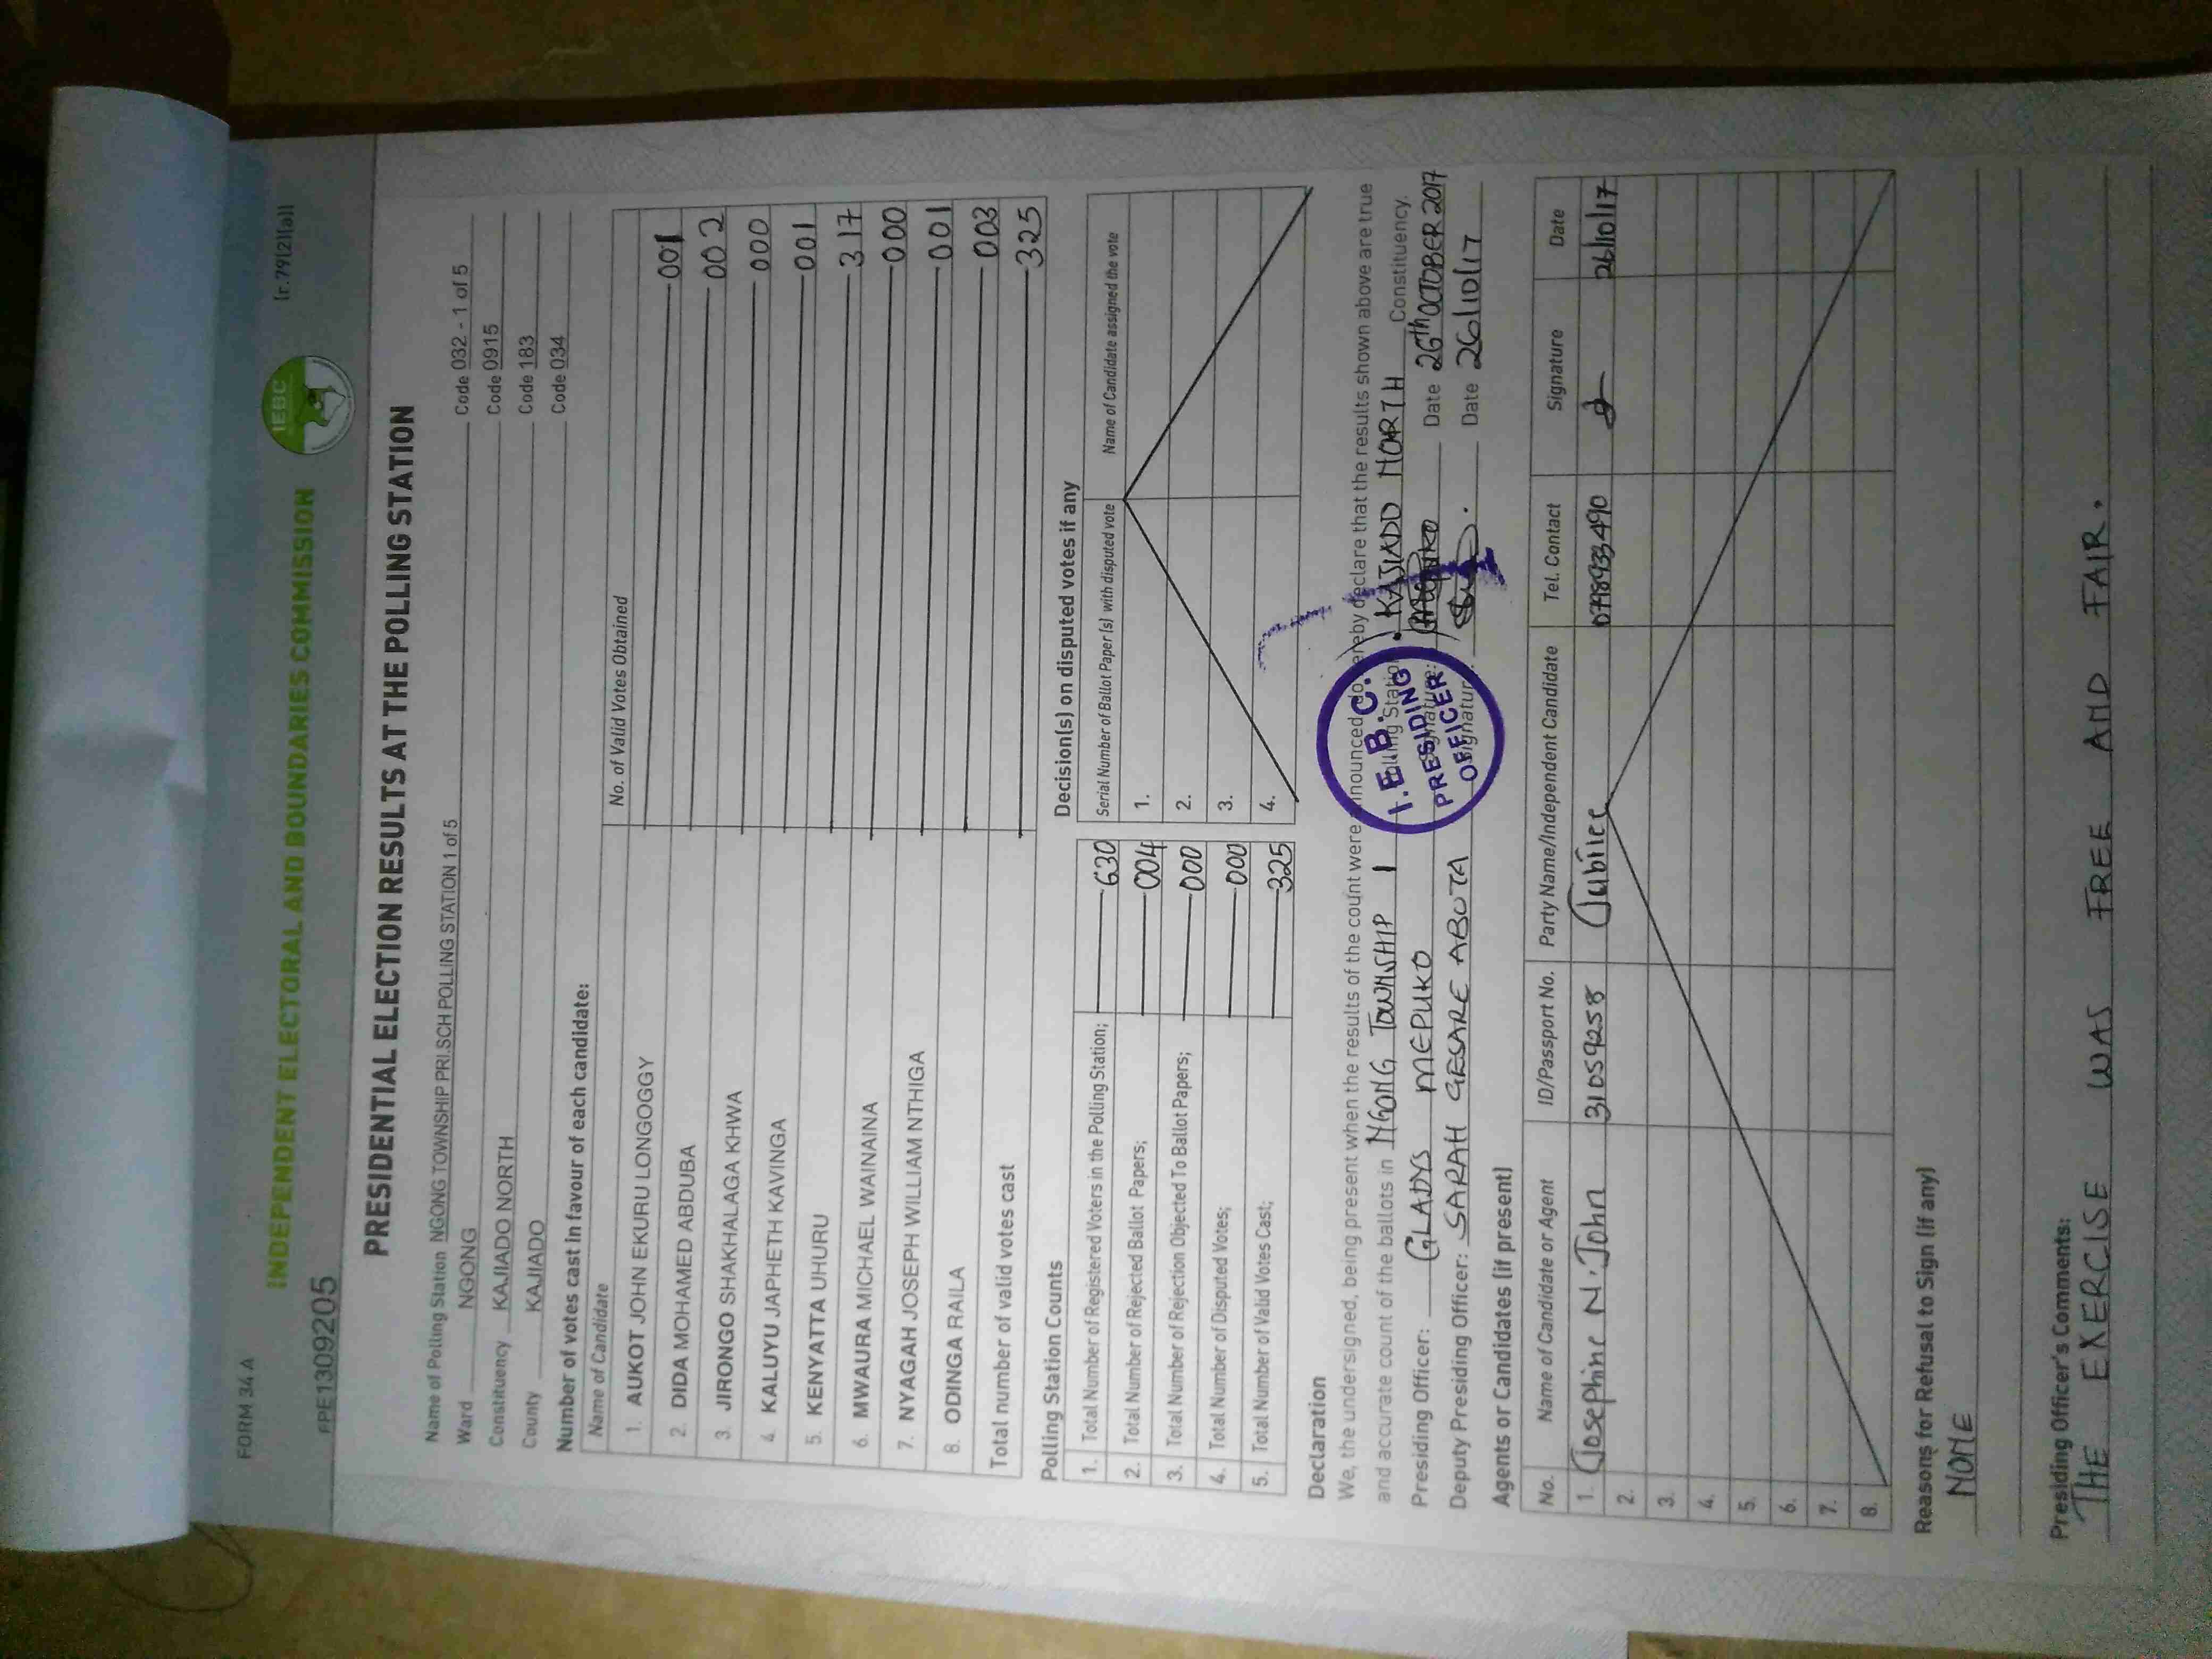 FORM 34 A
[r.79(2)(a)]
INDEPENDENT ELECTORAL AND BOUNDARIES COMMISSION
IEBC
PPE1309205
PRESIDENTIAL ELECTION RESULTS AT THE POLLING STATION
Name of Polling Station NGONG TOWNSHIP PRI.SCH POLLING STATION 1 of 5 Code 032 - 1 of 5
Ward NGONG Code 0915
Constituency KAJIADO NORTH Code 183
County KAJIADO Code 034
Number of votes cast in favour of each candidate:
Name of Candidate No. of Valid Votes Obtained
1. AUKOT JOHN EKURU LONGOGGY 001
2. DIDA MOHAMED ABDUBA 002
3. JIRONGO SHAKHALAGA KHWA 000
4. KALUYU JAPHETH KAVINGA 001
5. KENYATTA UHURU 317
6. MWAURA MICHAEL WAINAINA 000
7. NYAGAH JOSEPH WILLIAM NTHIGA 001
8. ODINGA RAILA 003
Total number of valid votes cast 325
Polling Station Counts
1. Total Number of Registered Voters in the Polling Station; 630
2. Total Number of Rejected Ballot Papers; 004
3. Total Number of Rejection Objected To Ballot Papers; 000
4. Total Number of Disputed Votes; 000
5. Total Number of Valid Votes Cast; 325
Decision(s) on disputed votes if any
Serial Number of Ballot Paper (s) with disputed vote Name of Candidate assigned the vote
1.
2.
3.
4.
Declaration
We, the undersigned, being present when the results of the count were announced do hereby declare that the results shown above are true
and accurate count of the ballots in NGONG TOWNSHIP 1 Polling Station, KAJIADO NORTH Constituency.
Presiding Officer: GLADYS MEPUKO Signature: Date 26th OCTOBER 2017
Deputy Presiding Officer: SARAH GESARE ABUTA Signature: Date 26/10/17
I.E.B.C.
PRESIDING
OFFICER
Agents or Candidates (if present)
No. Name of Candidate or Agent ID/Passport No. Party Name/Independent Candidate Tel. Contact Signature Date
1. Josephine N. John 31059258 Jubilee 0798933490 26/10/17
2.
3.
4.
5.
6.
7.
8.
Reasons for Refusal to Sign (if any)
NONE
Presiding Officer's Comments:
THE EXERCISE WAS FREE AND FAIR.